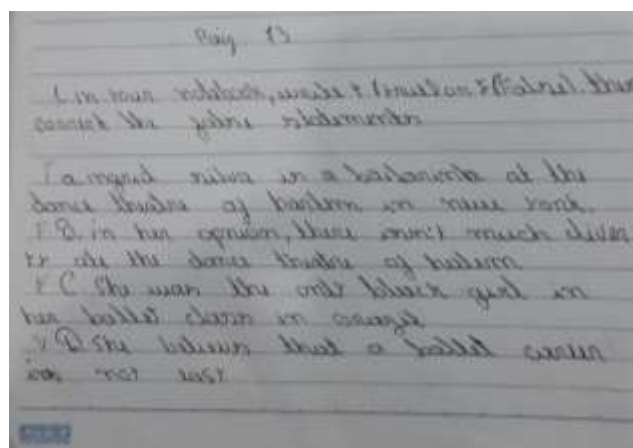 Pág 13
1 in your notebook, write T (true) or F (False). then
correct the false statements
T a ingrid silva is a bailarinta at the
dance theatre of harlem in new york.
F B. in her opinion, there isn't much diver
at the dance theatre of harlem
F C She was the only black girl in
her ballet class in
D She believes that a ballet career
is not easy